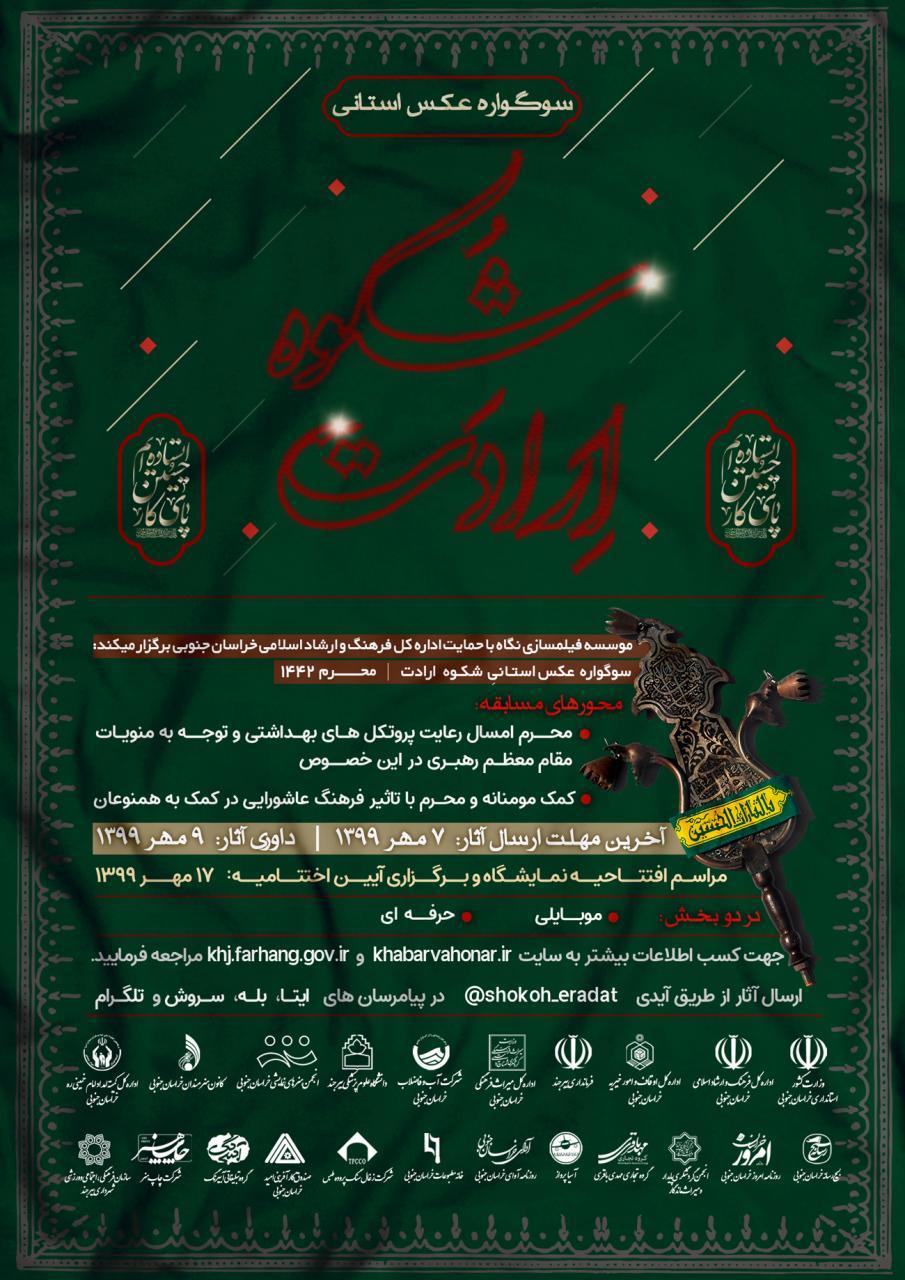 سوگواره عکس استانی
شکوه
ارادت
ایستاده‌ام
چنین
پای کار
ایستاده‌ام
چنین
پای کار
موسسه فیلمسازی نگاه با حمایت اداره کل فرهنگ و ارشاد اسلامی خراسان جنوبی برگزار میکند:
سوگواره عکس استانیِ شکوه ارادت | محـــرم ۱۴۴۲
محورهای مسابقه:
محـرم امسال رعایت پروتکل هـای بهـداشتی و توجـه به منویات
مقام معظم رهبری در این خصـوص
کمک مومنانه و محـرم با تاثیر فرهنگ عاشورایی در کمک به همنوعان
یالثارات الحسین
آخرین مهلت ارسال آثار: ۷ مهر ۱۳۹۹ | داوری آثار: ۹ مهر ۱۳۹۹
مراسم افتتـاحیه نمایشگاه و برگـزاری آیین اختتامیـه: ۱۷ مهـر ۱۳۹۹
در دو بخش: موبـایلی حرفـه ای
جهت کسب اطلاعات بیشتر به سایت khabarvahonar.ir و khj.farhang.gov.ir مراجعه فرمایید.
ارسال آثار از طریق آیدی @shokoh_eradat در پیامرسان های ایتـا، بله، سـروش و تلگـرام
وزارت کشور
استانداری خراسان جنوبی
اداره کل فرهنگ و ارشاد اسلامی
خراسان جنوبی
اداره کل اوقاف و امور خیریه
خراسان جنوبی
فرمانداری بیرجند
اداره کل میراث فرهنگی
خراسان جنوبی
شرکت آب و فاضلاب
خراسان جنوبی
دانشگاه علوم پزشکی بیرجند
انجمن هنرهای نمایشی خراسان جنوبی
کانون هنرمندان خراسان جنوبی
اداره کل کمیته امداد امام خمینی ره
خراسان جنوبی
بسیج رسانه خراسان جنوبی
امروز خراسان
روزنامه امروز خراسان جنوبی
انجمن گردشگری پایدار
و میراث ماندگار
مهدی باقری
گروه تجاری
گروه تجاری مهدی باقری
آسیا پرواز
آوای خراسان جنوبی
روزنامه آوای خراسان جنوبی
خانه مطبوعات خراسان جنوبی
TPCCO
شرکت زغال سنگ پروده طبس
صندوق کارآفرینی امید
خراسان جنوبی
گروه تبلیغاتی آتبرنگ
چاپ هنر
شرکت چاپ هنر
سازمان فرهنگی، اجتماعی و ورزشی
شهرداری بیرجند